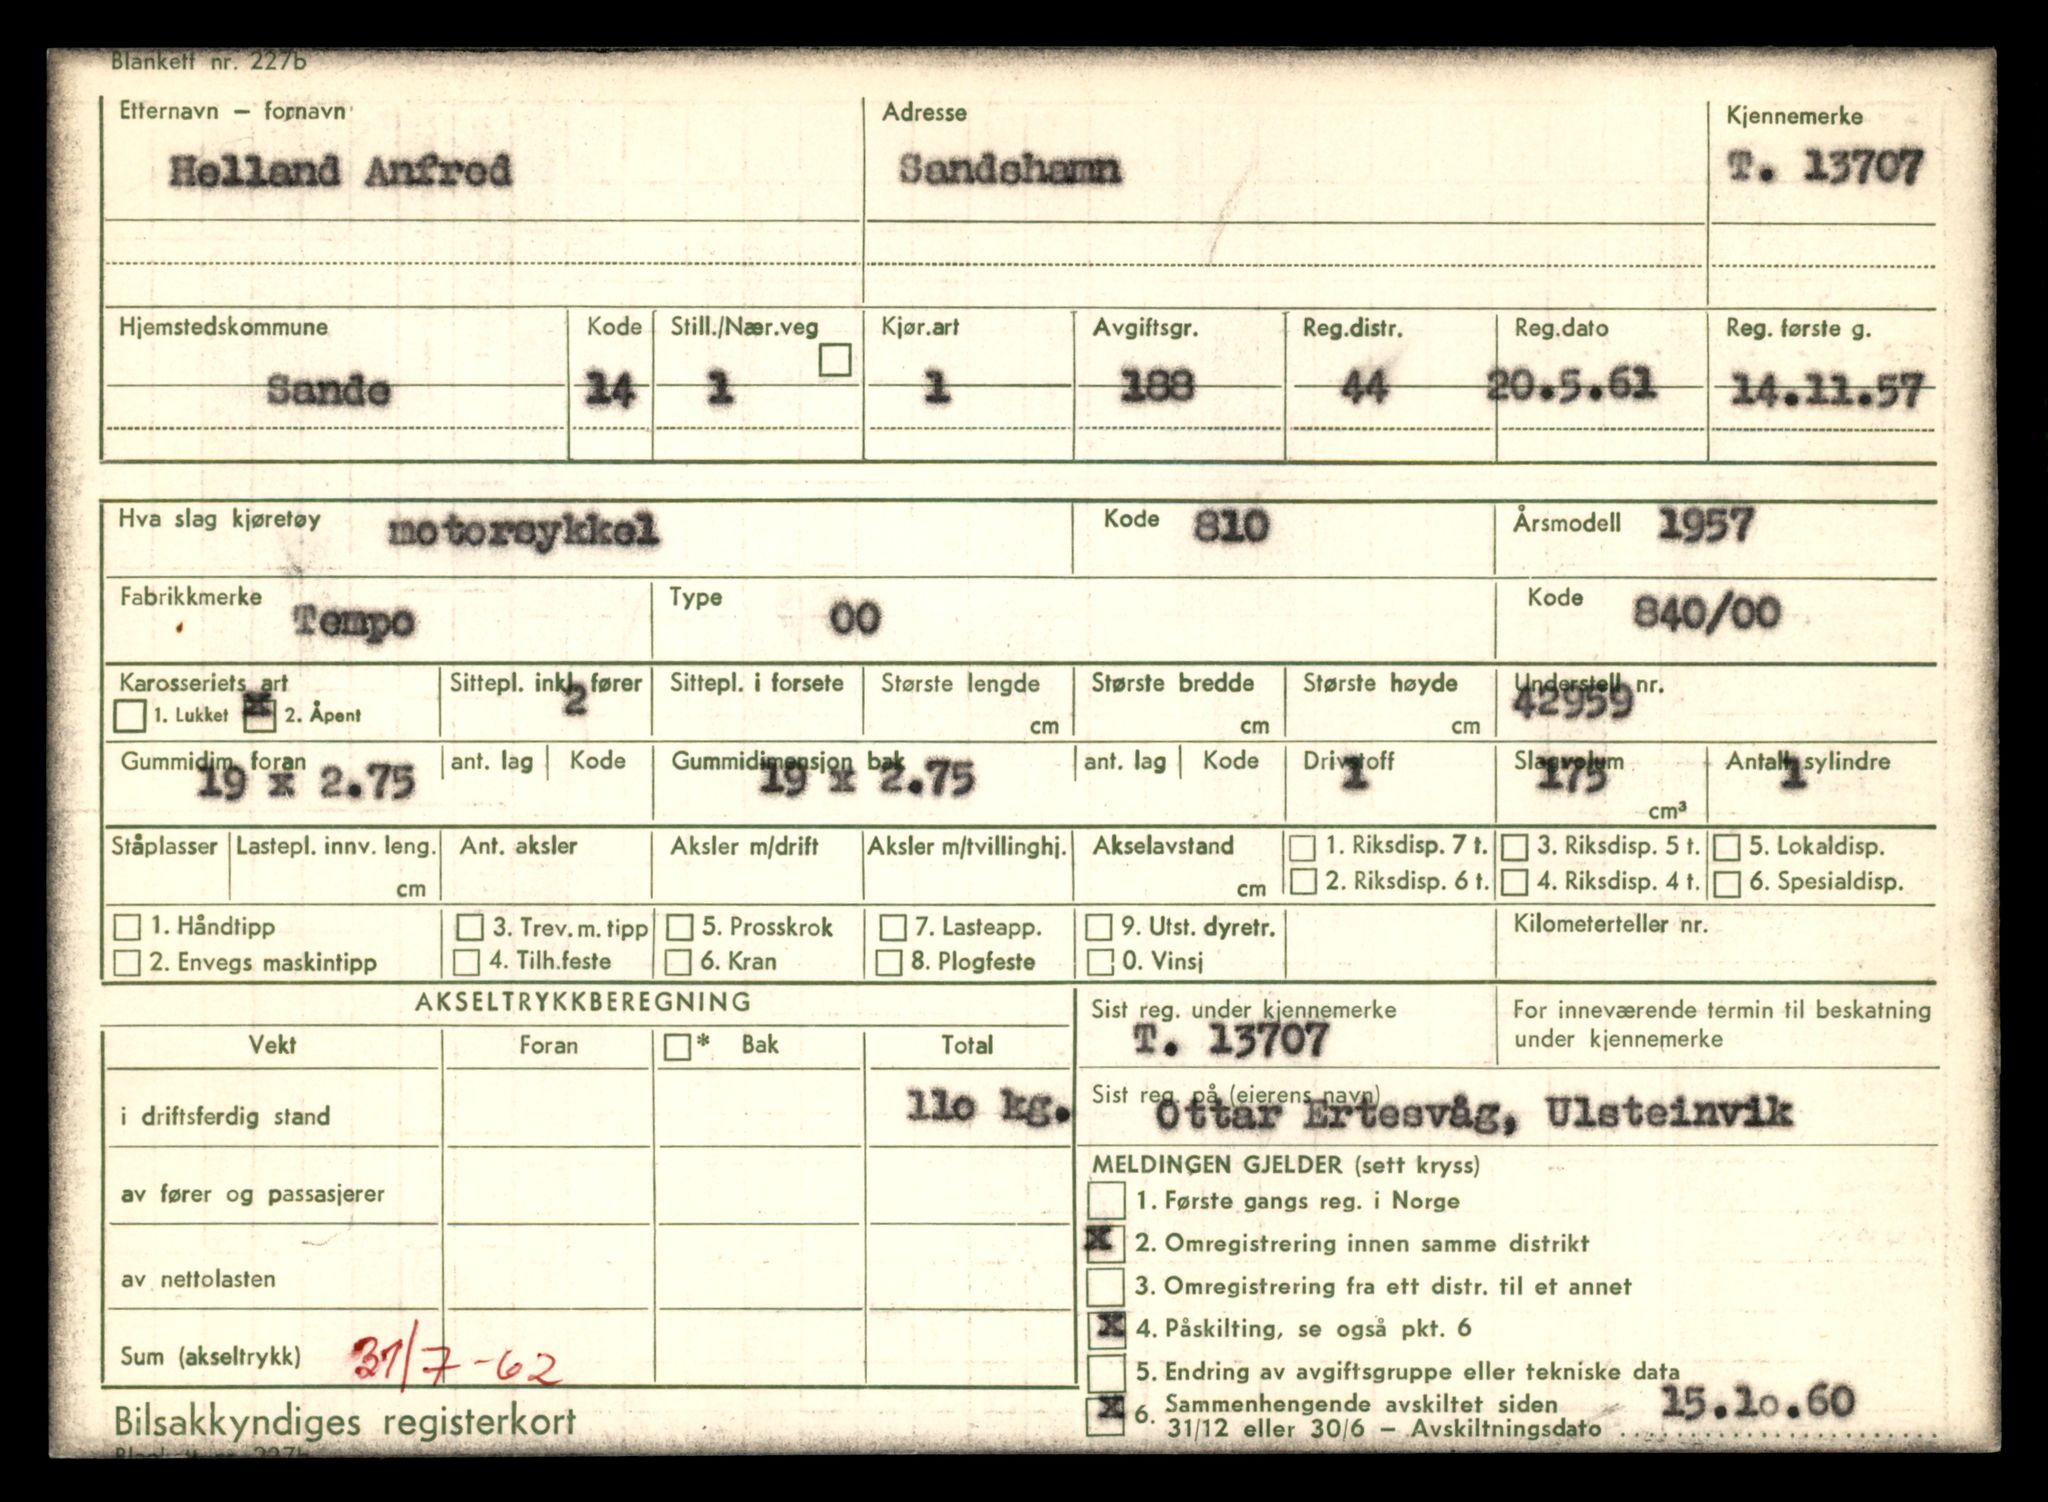 Blankett nr. 227b
Etternavn – fornavn Adresse Kjennemerke
Helland Anfred Sandshamn T. 13707
Hjemstedskommune Kode Still./Nær.veg Kjør.art Avgiftsgr. Reg.distr. Reg.dato Reg. første g.
Sande 14 1 1 188 44 20.5.61 14.11.57
Hva slag kjøretøy motorsykkel Kode 810 Årsmodell 1957
Fabrikkmerke Tempo Type 00 Kode 840/00
Karosseriets art Sittepl. inkl. fører Sittepl. i forsete Største lengde Største bredde Største høyde Understell nr.
1. Lukket x 2. Åpent 2 cm cm cm 42959
Gummidim. foran ant. lag Kode Gummidimensjon bak ant. lag Kode Drivstoff Slagvolum Antall sylindre
19 x 2.75 19 x 2.75 1 175 cm³ 1
Ståplasser Lastepl. innv. leng. Ant. aksler Aksler m/drift Aksler m/tvillinghj. Akselavstand 1. Riksdisp. 7 t. 3. Riksdisp. 5 t. 5. Lokaldisp.
cm cm 2. Riksdisp. 6 t. 4. Riksdisp. 4 t. 6. Spesialdisp.
1. Håndtipp 3. Trev. m. tipp 5. Prosskrok 7. Lasteapp. 9. Utst. dyretr. Kilometerteller nr.
2. Envegs maskintipp 4. Tilh.feste 6. Kran 8. Plogfeste 0. Vinsj
AKSELTRYKKBEREGNING
Vekt Foran * Bak Total
i driftsferdig stand 110 kg.
av fører og passasjerer
av nettolasten
Sum (akseltrykk) 31/7-62
Bilsakkyndiges registerkort
Sist reg. under kjennemerke For inneværende termin til beskatning
T. 13707 under kjennemerke
Sist reg. på (eierens navn)
Ottar Ertesvåg, Ulsteinvik
MELDINGEN GJELDER (sett kryss)
1. Første gangs reg. i Norge
x 2. Omregistrering innen samme distrikt
3. Omregistrering fra ett distr. til et annet
x 4. Påskilting, se også pkt. 6
5. Endring av avgiftsgruppe eller tekniske data
x 6. Sammenhengende avskiltet siden 15.10.60
31/12 eller 30/6 – Avskiltningsdato
Blankett nr. 227b